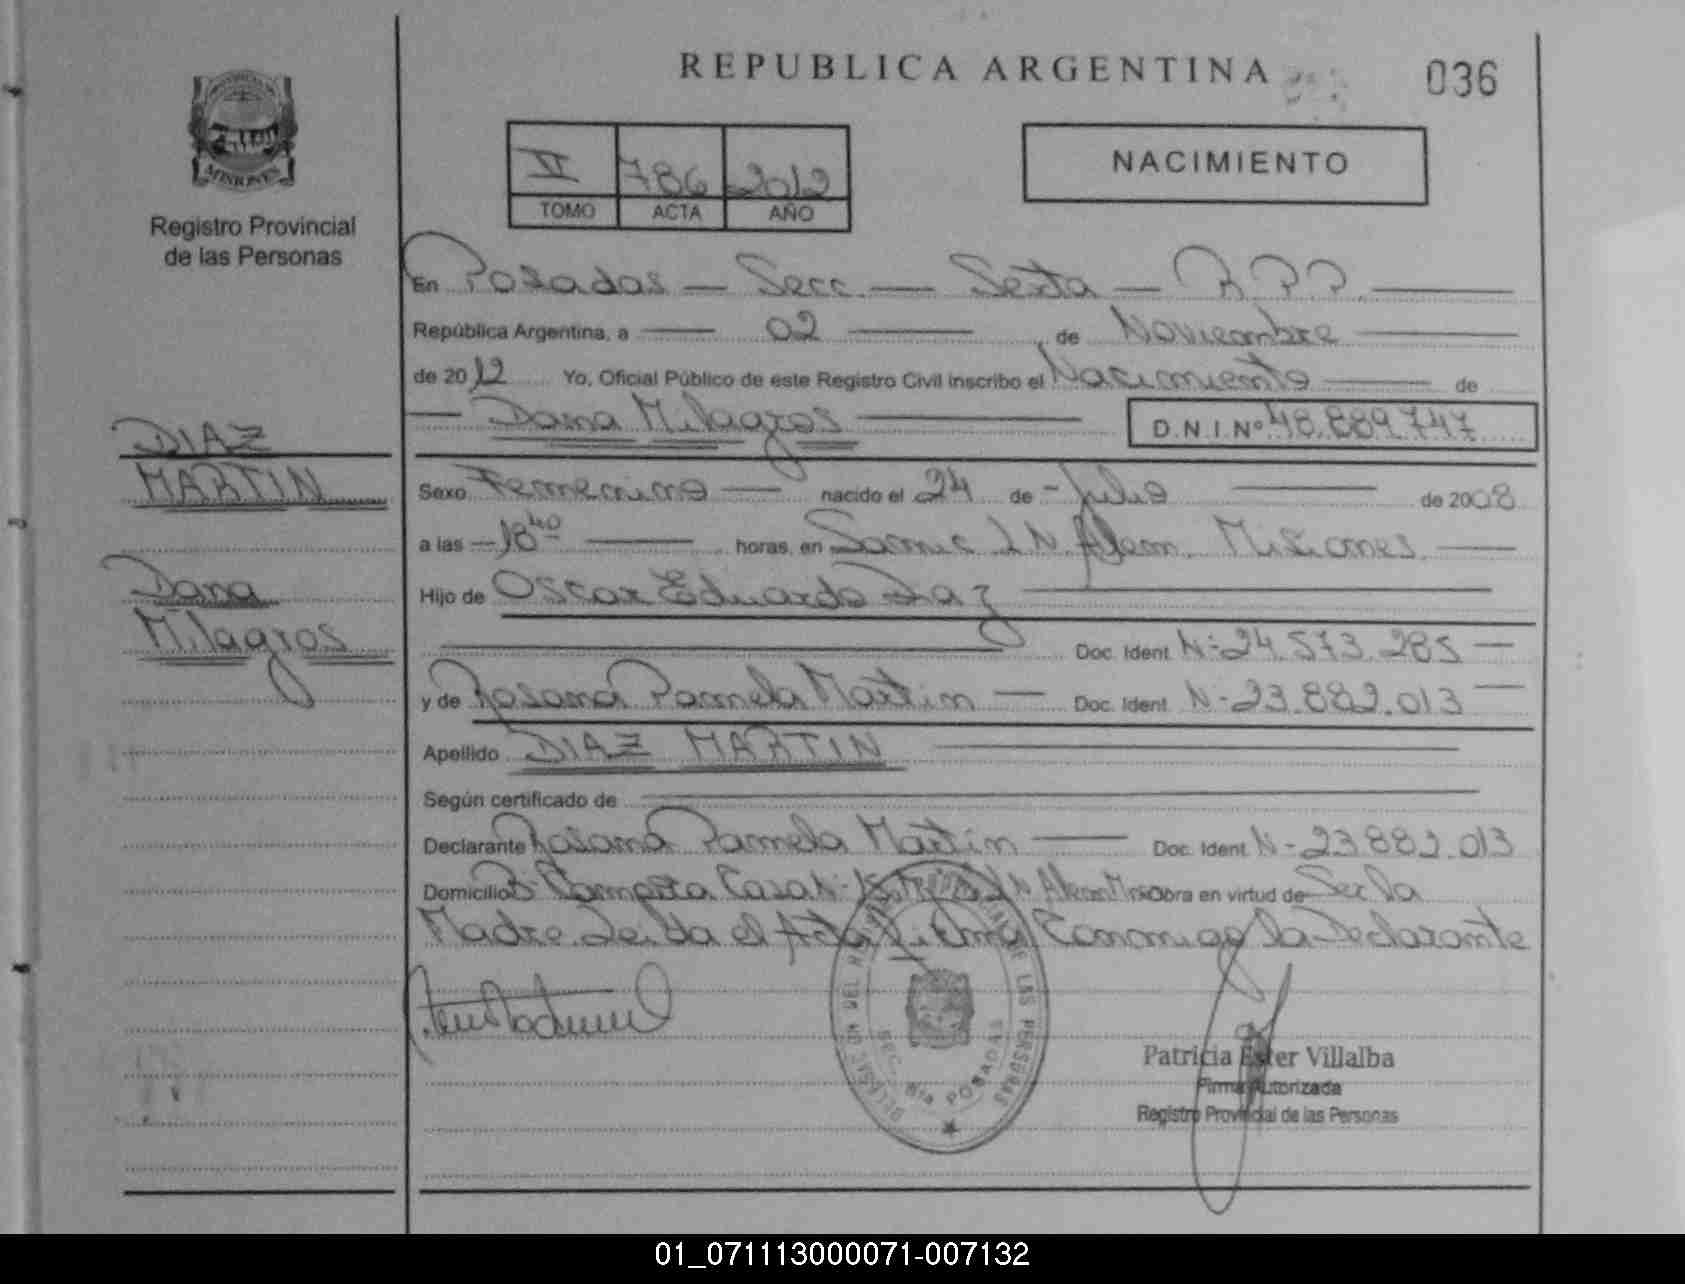 REPUBLICA ARGENTINA
036
MISIONES
Registro Provincial
de las Personas
VI 786 2012
TOMO ACTA AÑO
NACIMIENTO
En Posadas — Secc. — Sexta — R.P.P.
República Argentina, a 02 de Noviembre
de 2012 Yo, Oficial Público de este Registro Civil inscribo el Nacimiento de
Dana Milagros D.N.I.Nº 48.889.747
DIAZ
MARTIN
Dana
Milagros
Sexo Femenino nacido el 24 de Julio de 2008
a las 18 40 horas, en Samic L.N. Alem. Misiones
Hijo de Oscar Eduardo Diaz
Doc. Ident. N-24.573.285
y de Rosana Pamela Martin Doc. Ident. N-23.882.013
Apellido DIAZ MARTIN
Según certificado de
Declarante Rosana Pamela Martin Doc. Ident. N-23.882.013
Domicilio Casa L.N. Alem Obra en virtud de Ser la
Madre Leida el Acta Firma Conmigo la Declarante
SEC. 6ta POSADAS
DE LAS PERSONAS
Patricia Ester Villalba
Firma Autorizada
Registro Provincial de las Personas
01_071113000071-007132